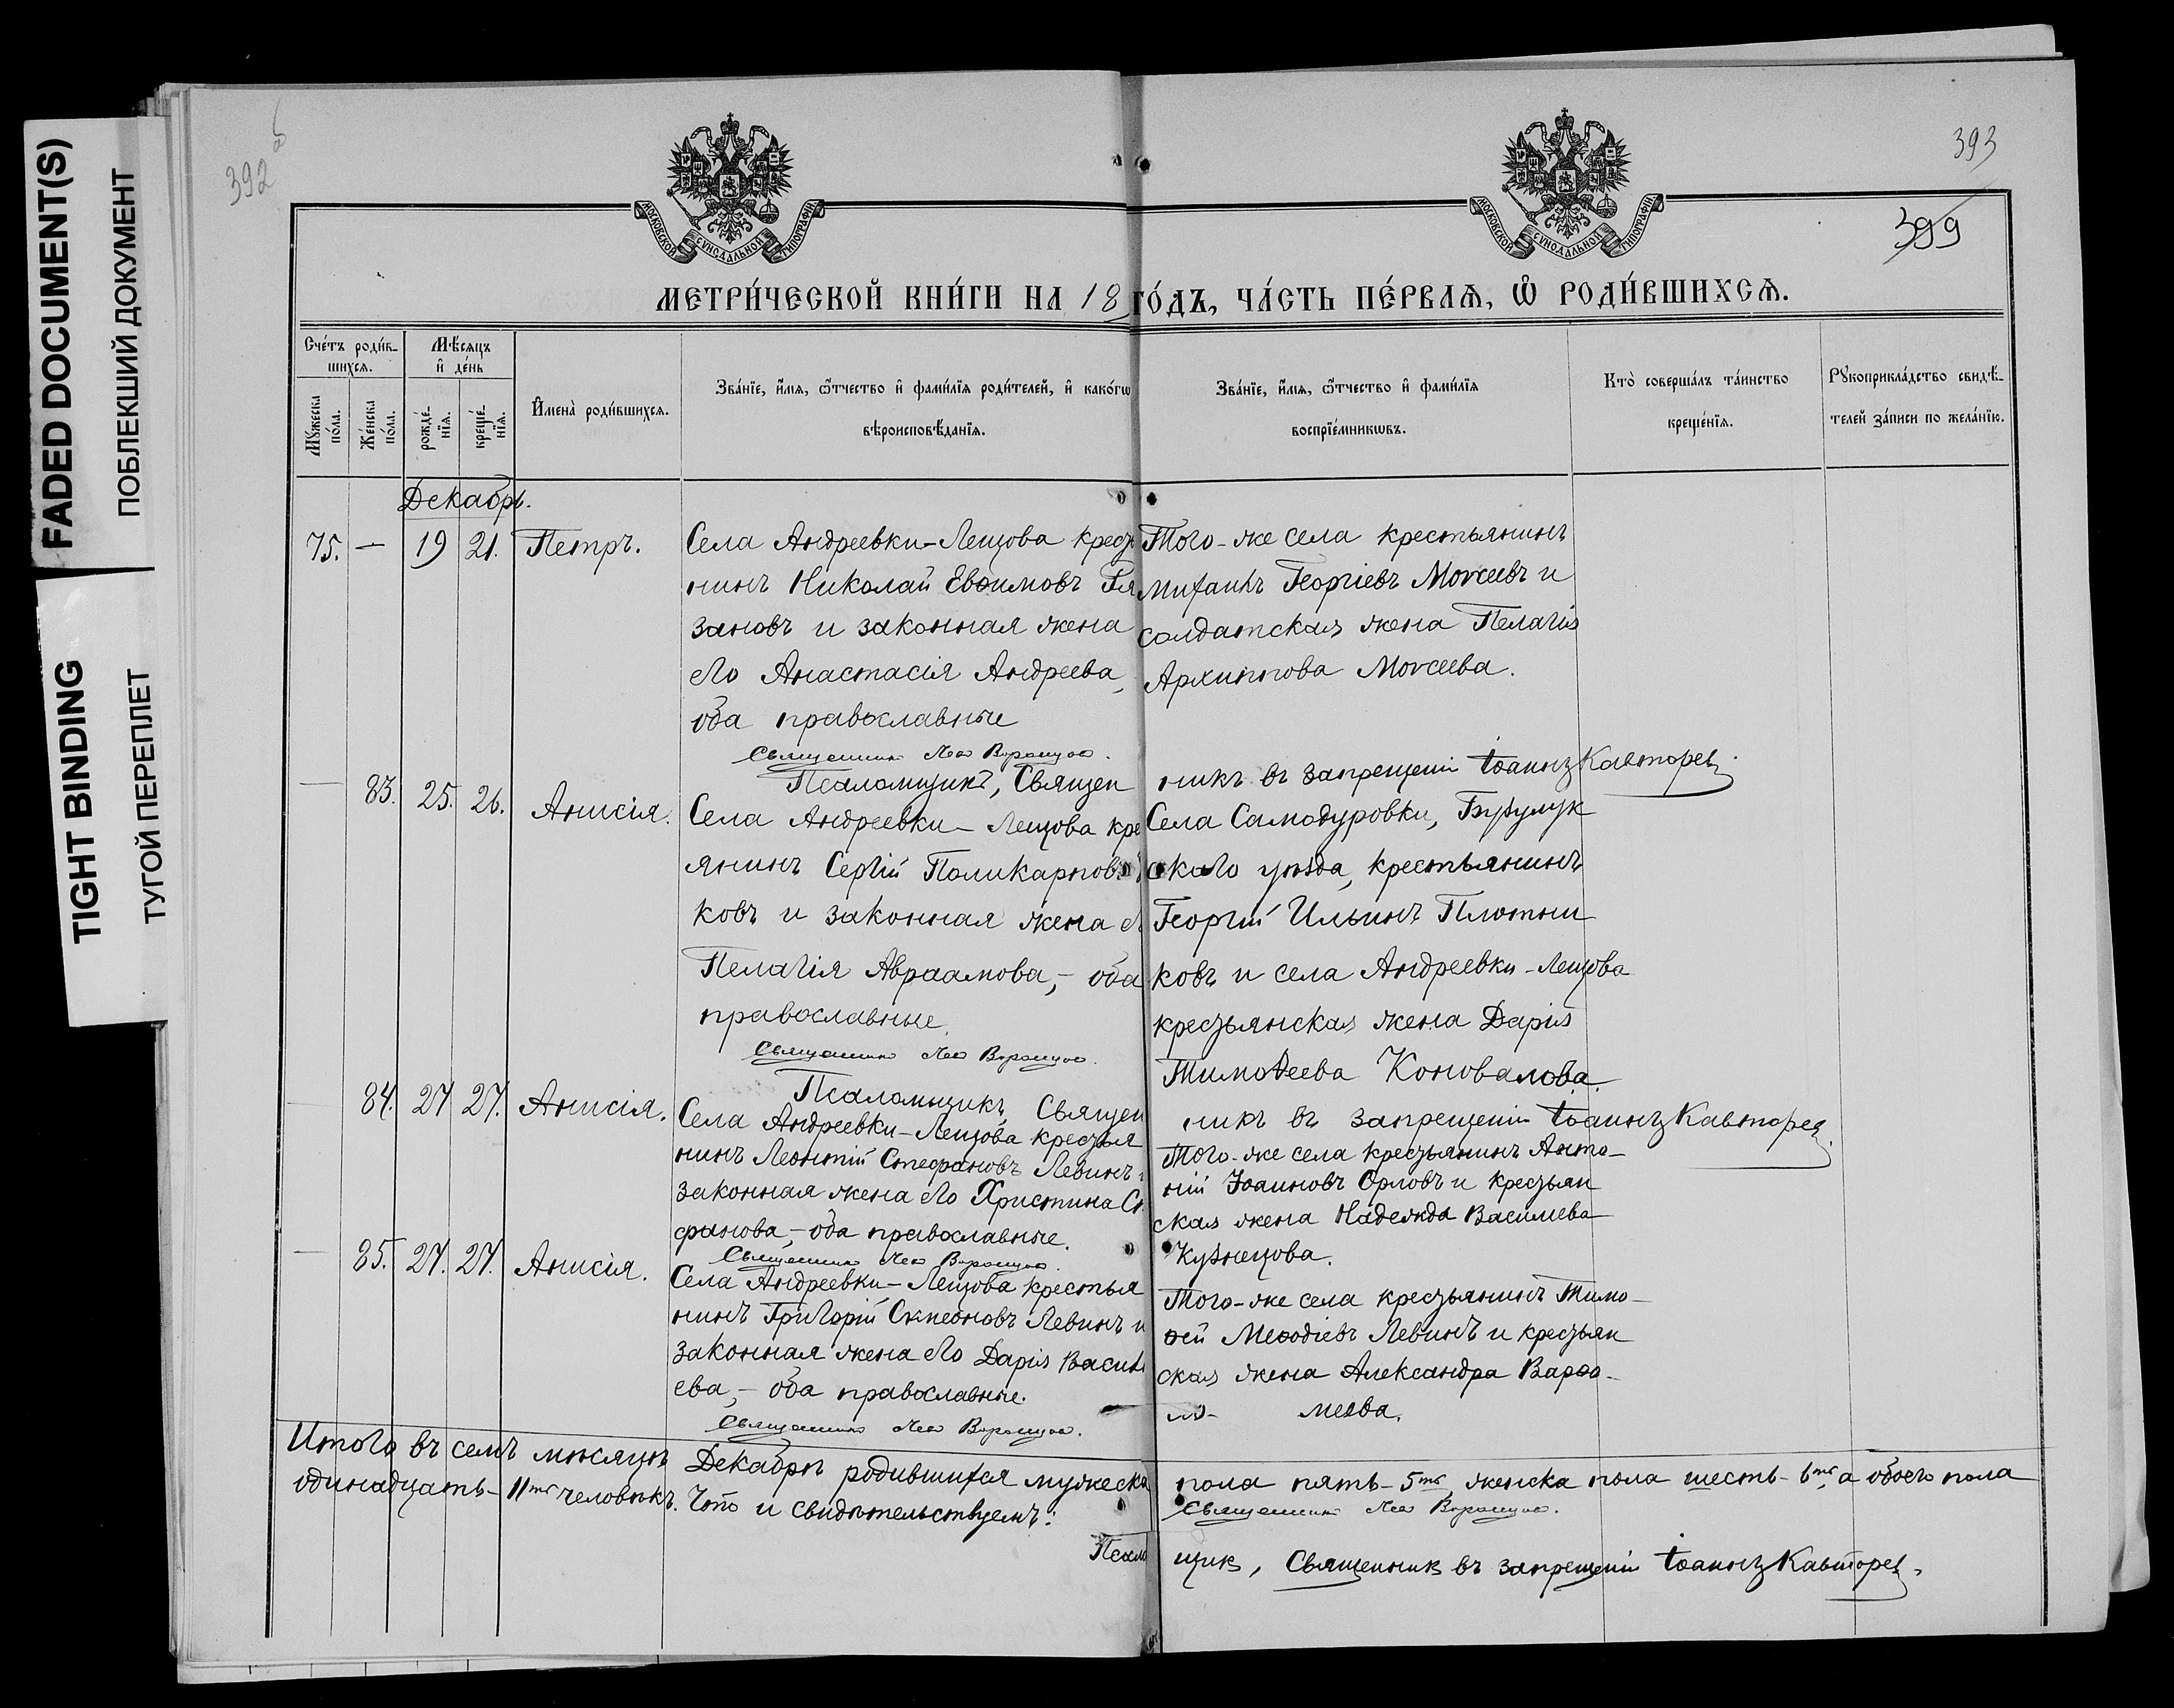 FADED DOCUMENT(S)
ПОБЛЕКШИЙ ДОКУМЕНТ
TIGHT BINDING
ТУГОЙ ПЕРЕПЛЕТ
392
393
399
МОСКОВСКОЙ СУНОДАЛЬНОЙ ТИПОГРАФІИ
МОСКОВСКОЙ СУНОДАЛЬНОЙ ТИПОГРАФІИ
МЕТРИ́ЧЕСКОЙ КНИ́ГИ НА 18 ГО́ДЪ, ЧА́СТЬ ПЕ́РВАѦ, Ѽ РОДИ́ВШИХСѦ.
Сче́тъ роди́вшихсѧ.
Мѹ́жеска по́ла.
Же́нска по́ла.
Мѣ́сѧцъ и҆ де́нь
рожде́нїѧ.
креще́нїѧ.
И҆мена̀ роди́вшихсѧ.
Зва́нїе, и҆́мѧ, ѻ҆́тчество и҆ фами́лїѧ роди́телей, и҆ како́гѡ
вѣроисповѣ́данїѧ.
Зва́нїе, и҆́мѧ, ѻ҆́тчество и҆ фами́лїѧ
воспрїе́мникѡвъ.
Кто̀ соверша́лъ та́инство
креще́нїѧ.
Рꙋкоприкла́дство свидѣ́телей за́писи по жела́нїю.
Декабрь.
75. — 19 21. Петръ.
Села Андреевки-Лещова кресть
нинъ Николай Евѳимовъ Гля
зановъ и законная жена
его Анастасія Андреева,
оба православные
Священникъ Левъ Воронцовъ.
Того-же села крестьянинъ
Михаилъ Георгіевъ Моѵсеевъ и
солдатская жена Пелагія
Архиппова Моѵсеева.
Псаломщикъ, Священникъ въ запрещеніи Іоаннъ Кавторевъ
— 83. 25. 26. Анисія.
Села Андреевки-Лещова кре
янинъ Сергій Поликарповъ
ковъ и законная жена
Пелагія Авраамова,- оба
православные.
Священникъ Левъ Воронцовъ.
Села Самодуровки, Бузулук
скаго уѣзда, крестьянинъ
Георгій Ильинъ Плотни
ковъ и села Андреевки-Лещова
крестьянская жена Дарія
Тимоѳеева Коновалова.
Псаломщикъ, Священникъ въ запрещеніи Іоаннъ Кавторевъ
— 84. 27 27. Анисія.
Села Андреевки-Лещова крестья
нинъ Леонтій Стефановъ Левинъ
законная жена его Христина Ст
фанова,- оба православные.
Священникъ Левъ Воронцовъ.
Того-же села крестьянинъ Анто-
ній Іоанновъ Орловъ и крестьян
ская жена Надежда Васильева
Кузнецова.
— 85. 27. 27. Анисія.
Села Андреевки-Лещова крестья
нинъ Григорій Симеоновъ Левинъ и
законная жена его Дарія Василь
ева,- оба православные.
Священникъ Левъ Воронцовъ.
Того-же села крестьянинъ Тимо-
ѳей Меѳодіевъ Левинъ и крестьян
ская жена Александра Варѳо-
ло- меева.
Итого въ семъ мѣсяцѣ Декабрѣ родившихся мужеска пола пять-5ть, женска пола шесть-6ть, а обоего пола
одинадцать-11ть человѣкъ. Что и свидѣтельствуемъ: Священникъ Левъ Воронцовъ.
Псаломщикъ, Священникъ въ запрещеніи Іоаннъ Кавторевъ.